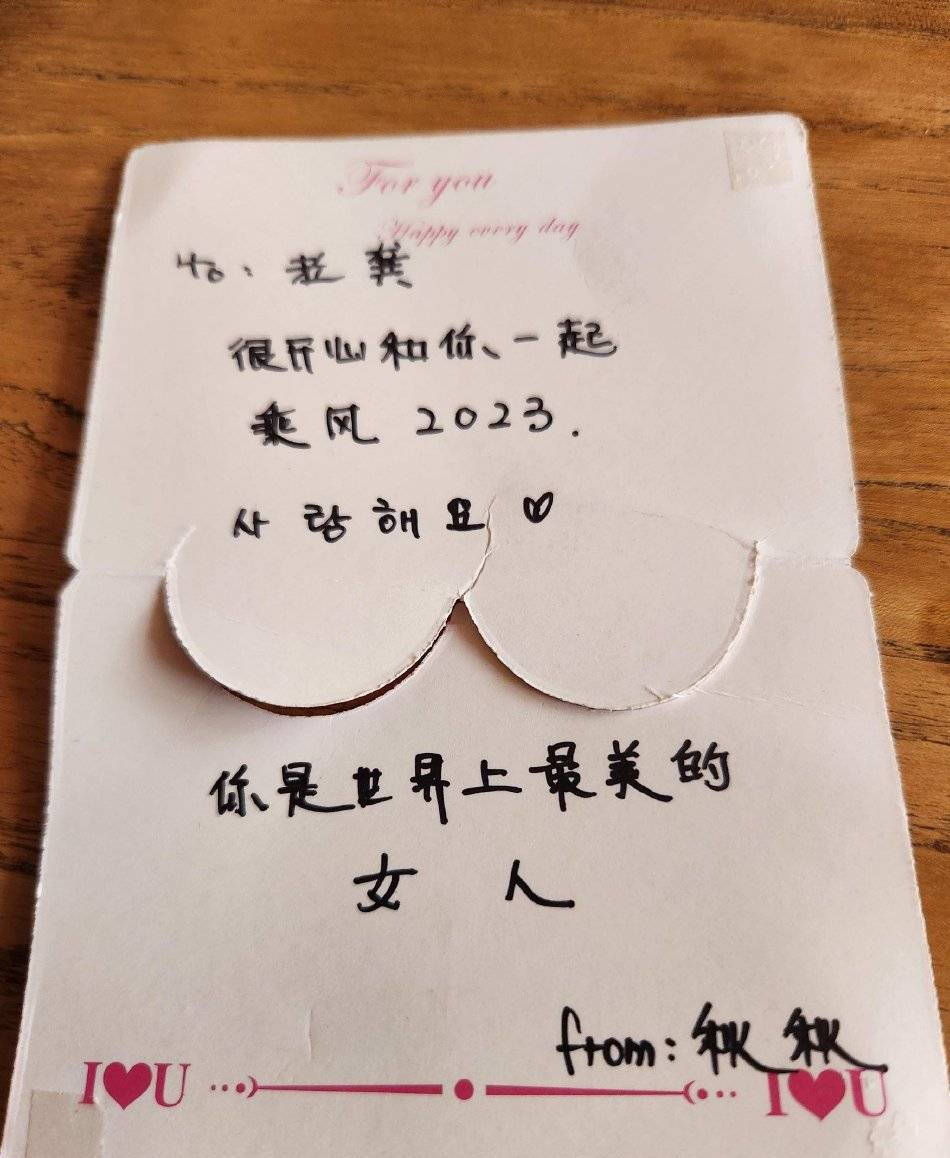 For you
Happy every day
to: 老龚
很开心和你、一起
乘风 2023.
사랑해요♡
你是世界上最美的
女人
from: 秋秋
I♥U I♥U